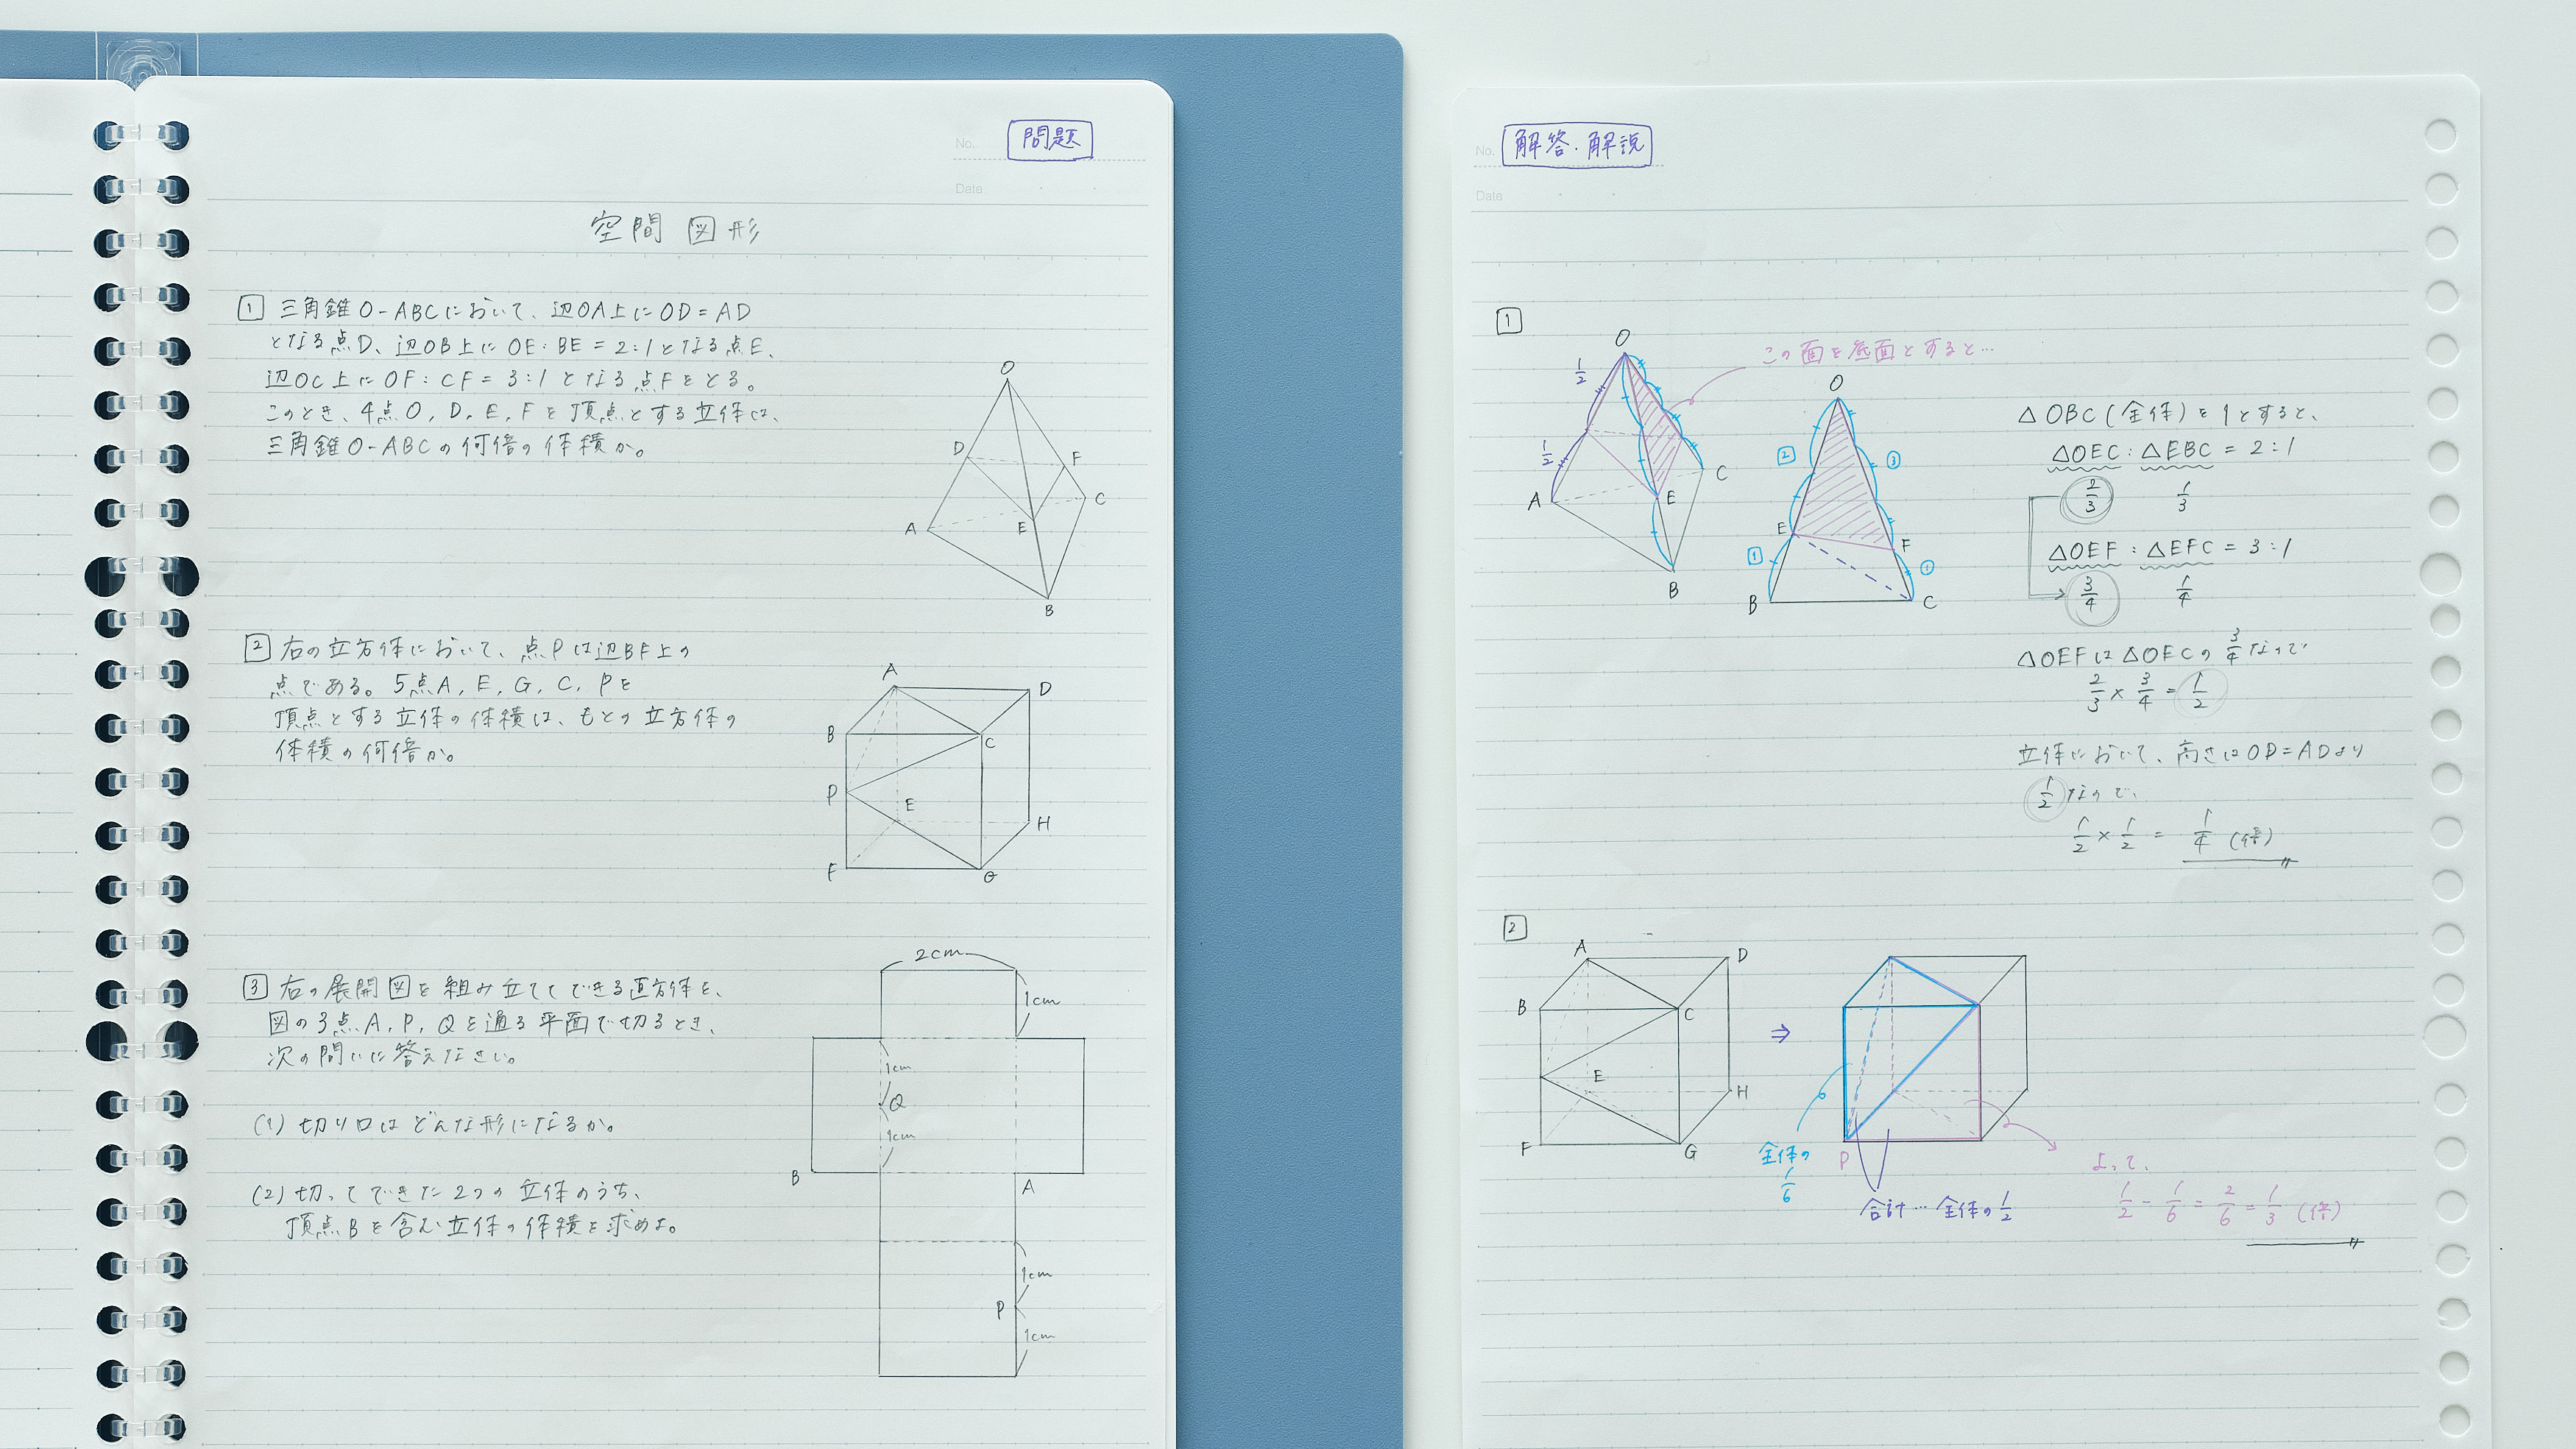 問題
No.
Date
空間図形
1 三角錐O-ABCにおいて、辺OA上にOD=AD
となる点D、辺OB上にOE:BE=2:1となる点E、
辺OC上にOF:CF=3:1となる点Fをとる。
このとき、4点O, D, E, Fを頂点とする立体は、
三角錐O-ABCの何倍の体積か。
O
D
F
C
A
E
B
2 右の立方体において、点Pは辺BF上の
点である。5点A, E, G, C, Pを
頂点とする立体の体積は、もとの立方体の
体積の何倍か。
A
D
B
C
P
E
H
F
G
3 右の展開図を組み立ててできる直方体を、
図の3点A, P, Qを通る平面で切るとき、
次の問いに答えなさい。
(1) 切り口はどんな形になるか。
(2) 切ってできた2つの立体のうち、
頂点Bを含む立体の体積を求めよ。
2cm
1cm
1cm
Q
1cm
B
A
1cm
P
1cm
No.
解答・解説
Date
1
O
1/2
1/2
A
C
E
B
この面を底面とすると…
O
2
3
E
F
1
1
B
C
△OBC(全体)を1とすると、
△OEC:△EBC=2:1
2/3 1/3
△OEF:△EFC=3:1
3/4 1/4
△OEFは△OECの3/4なので
2/3×3/4=1/2
立体において、高さはOD=ADより
1/2なので、
1/2×1/2=1/4(倍)
2
A
D
B
C
E
H
F
G
⇒
全体の
1/6
P
合計…全体の1/2
よって、
1/2-1/6=2/6=1/3(倍)